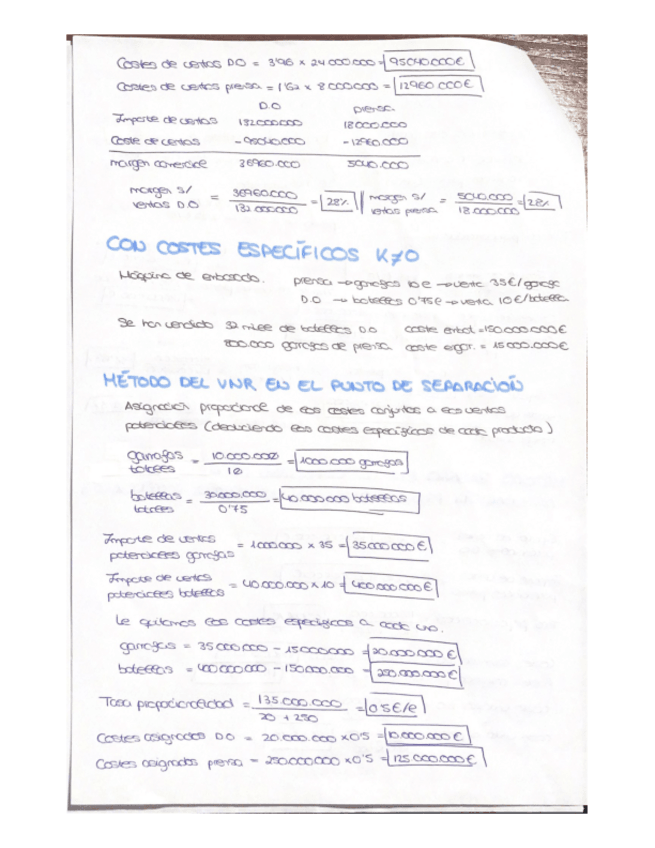 Costes de ventas D.O = 3'96 x 24 000 000 = 95040.000€
Costes de ventas prensa = 1'62 x 8 000000 = 12960.000€
D.O prensa
Importe de ventas 132000000 18000.000
Coste de ventas -95040.000 -12960.000
margen comercial 36960.000 5040.000
margen s/ ventas D.O = 36960.000 / 132 000000 = 28% | margen s/ ventas prensa = 5040.000 / 18.000.000 = 28%
CON COSTES ESPECÍFICOS K≠0
Máquina de embasado. prensa → garrafas 10 e → venta 35€/garrafa
D.O → botellas 0'75 e → venta 10€/botella
Se han vendido 32 mill de botellas D.O coste embot. = 150.000.000€
800.000 garrafas de prensa coste = 15 000.000€
MÉTODO DEL VNR EN EL PUNTO DE SEPARACIÓN
Asignación proporcional de los costes conjuntos a las ventas
potenciales (deduciendo los costes específicos de cada producto)
garrafas totales = 10.000.000 / 10 = 1000.000 garrafas
botellas totales = 30000.000 / 0'75 = 40.000.000 botellas
Importe de ventas potenciales garrafas = 1000000 x 35 = 35000000€
Importe de ventas potenciales botellas = 40.000.000 x 10 = 400.000.000€
Le quitamos los costes específicos a cada uno.
garrafas = 35 000.000 - 15000000 = 20.000.000€
botellas = 400 000.000 - 150.000.000 = 250.000.000€
Tasa proporcionalidad = 135.000.000 / 20 + 250 = 0'5€/e
Costes asignados D.O = 20.000.000 x 0'5 = 10.000.000€
Costes asignados prensa = 250.000.000 x 0'5 = 125.000.000€